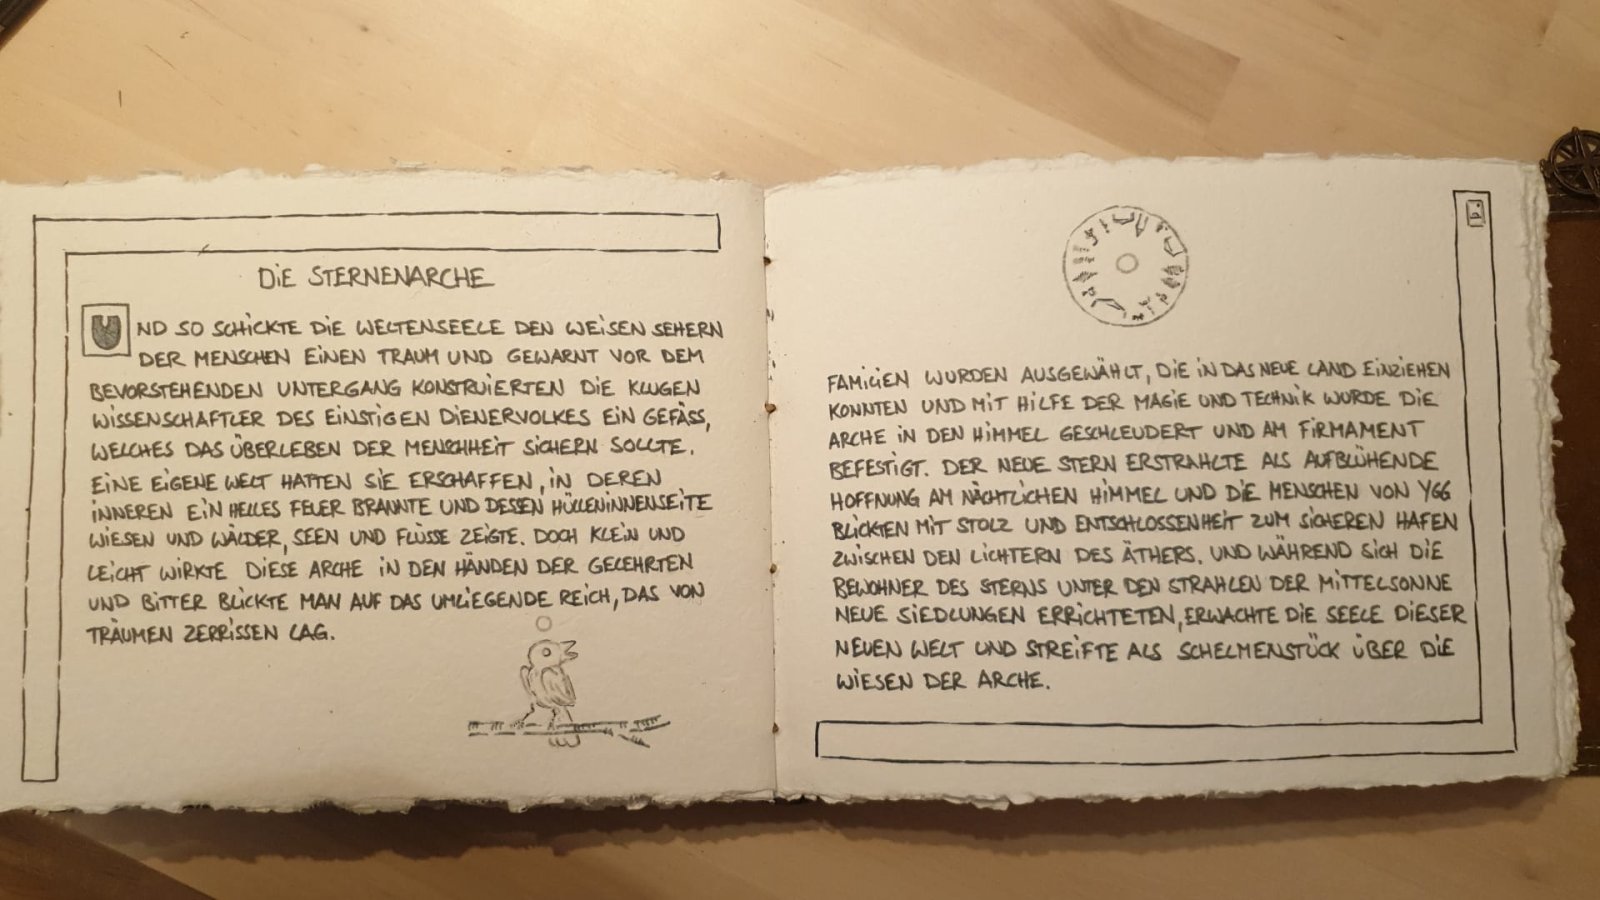 DIE STERNENARCHE
UND SO SCHICKTE DIE WELTENSEELE DEN WEISEN SEHERN
DER MENSCHEN EINEN TRAUM UND GEWARNT VOR DEM
BEVORSTEHENDEN UNTERGANG KONSTRUIERTEN DIE KLUGEN
WISSENSCHAFTLER DES EINSTIGEN DIENERVOLKES EIN GEFÄSS,
WELCHES DAS ÜBERLEBEN DER MENSCHHEIT SICHERN SOLLTE.
EINE EIGENE WELT HATTEN SIE ERSCHAFFEN, IN DEREN
INNEREN EIN HELLES FEUER BRANNTE UND DESSEN HÜLLENINNENSEITE
WIESEN UND WÄLDER, SEEN UND FLÜSSE ZEIGTE. DOCH KLEIN UND
LEICHT WIRKTE DIESE ARCHE IN DEN HÄNDEN DER GELEHRTEN
UND BITTER BLICKTE MAN AUF DAS UMLIEGENDE REICH, DAS VON
TRÄUMEN ZERRISSEN LAG.
FAMILIEN WURDEN AUSGEWÄHLT, DIE IN DAS NEUE LAND EINZIEHEN
KONNTEN UND MIT HILFE DER MAGIE UND TECHNIK WURDE DIE
ARCHE IN DEN HIMMEL GESCHLEUDERT UND AM FIRMAMENT
BEFESTIGT. DER NEUE STERN ERSTRAHLTE ALS AUFBLÜHENDE
HOFFNUNG AM NÄCHTLICHEN HIMMEL UND DIE MENSCHEN VON YGG
BLICKTEN MIT STOLZ UND ENTSCHLOSSENHEIT ZUM SICHEREN HAFEN
ZWISCHEN DEN LICHTERN DES ÄTHERS. UND WÄHREND SICH DIE
BEWOHNER DES STERNS UNTER DEN STRAHLEN DER MITTELSONNE
NEUE SIEDLUNGEN ERRICHTETEN, ERWACHTE DIE SEELE DIESER
NEUEN WELT UND STREIFTE ALS SCHELMENSTÜCK ÜBER DIE
WIESEN DER ARCHE.